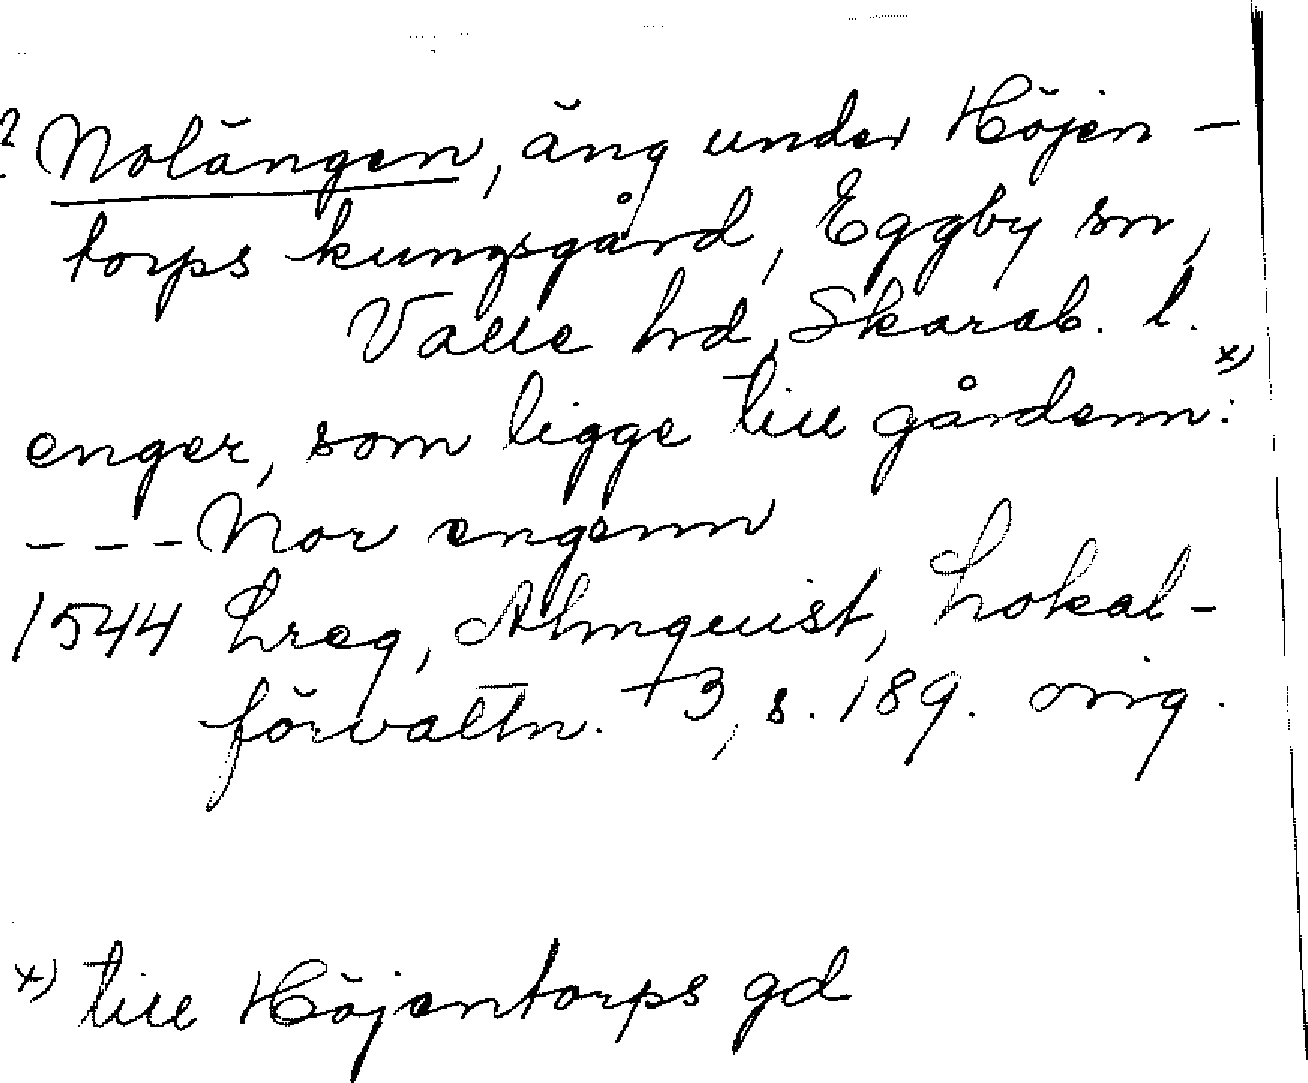 ? Nolängen, äng under Höjen-
torps kungsgård, Eggby sn,
Valle hd, Skarab. l.
enger, som ligge till gårdenn: x)
--- Nor engenn
1544 Lreg, Almquist, Lokal-
förvaltn. 3, s. 189. orig.
x) till Höjentorps gd